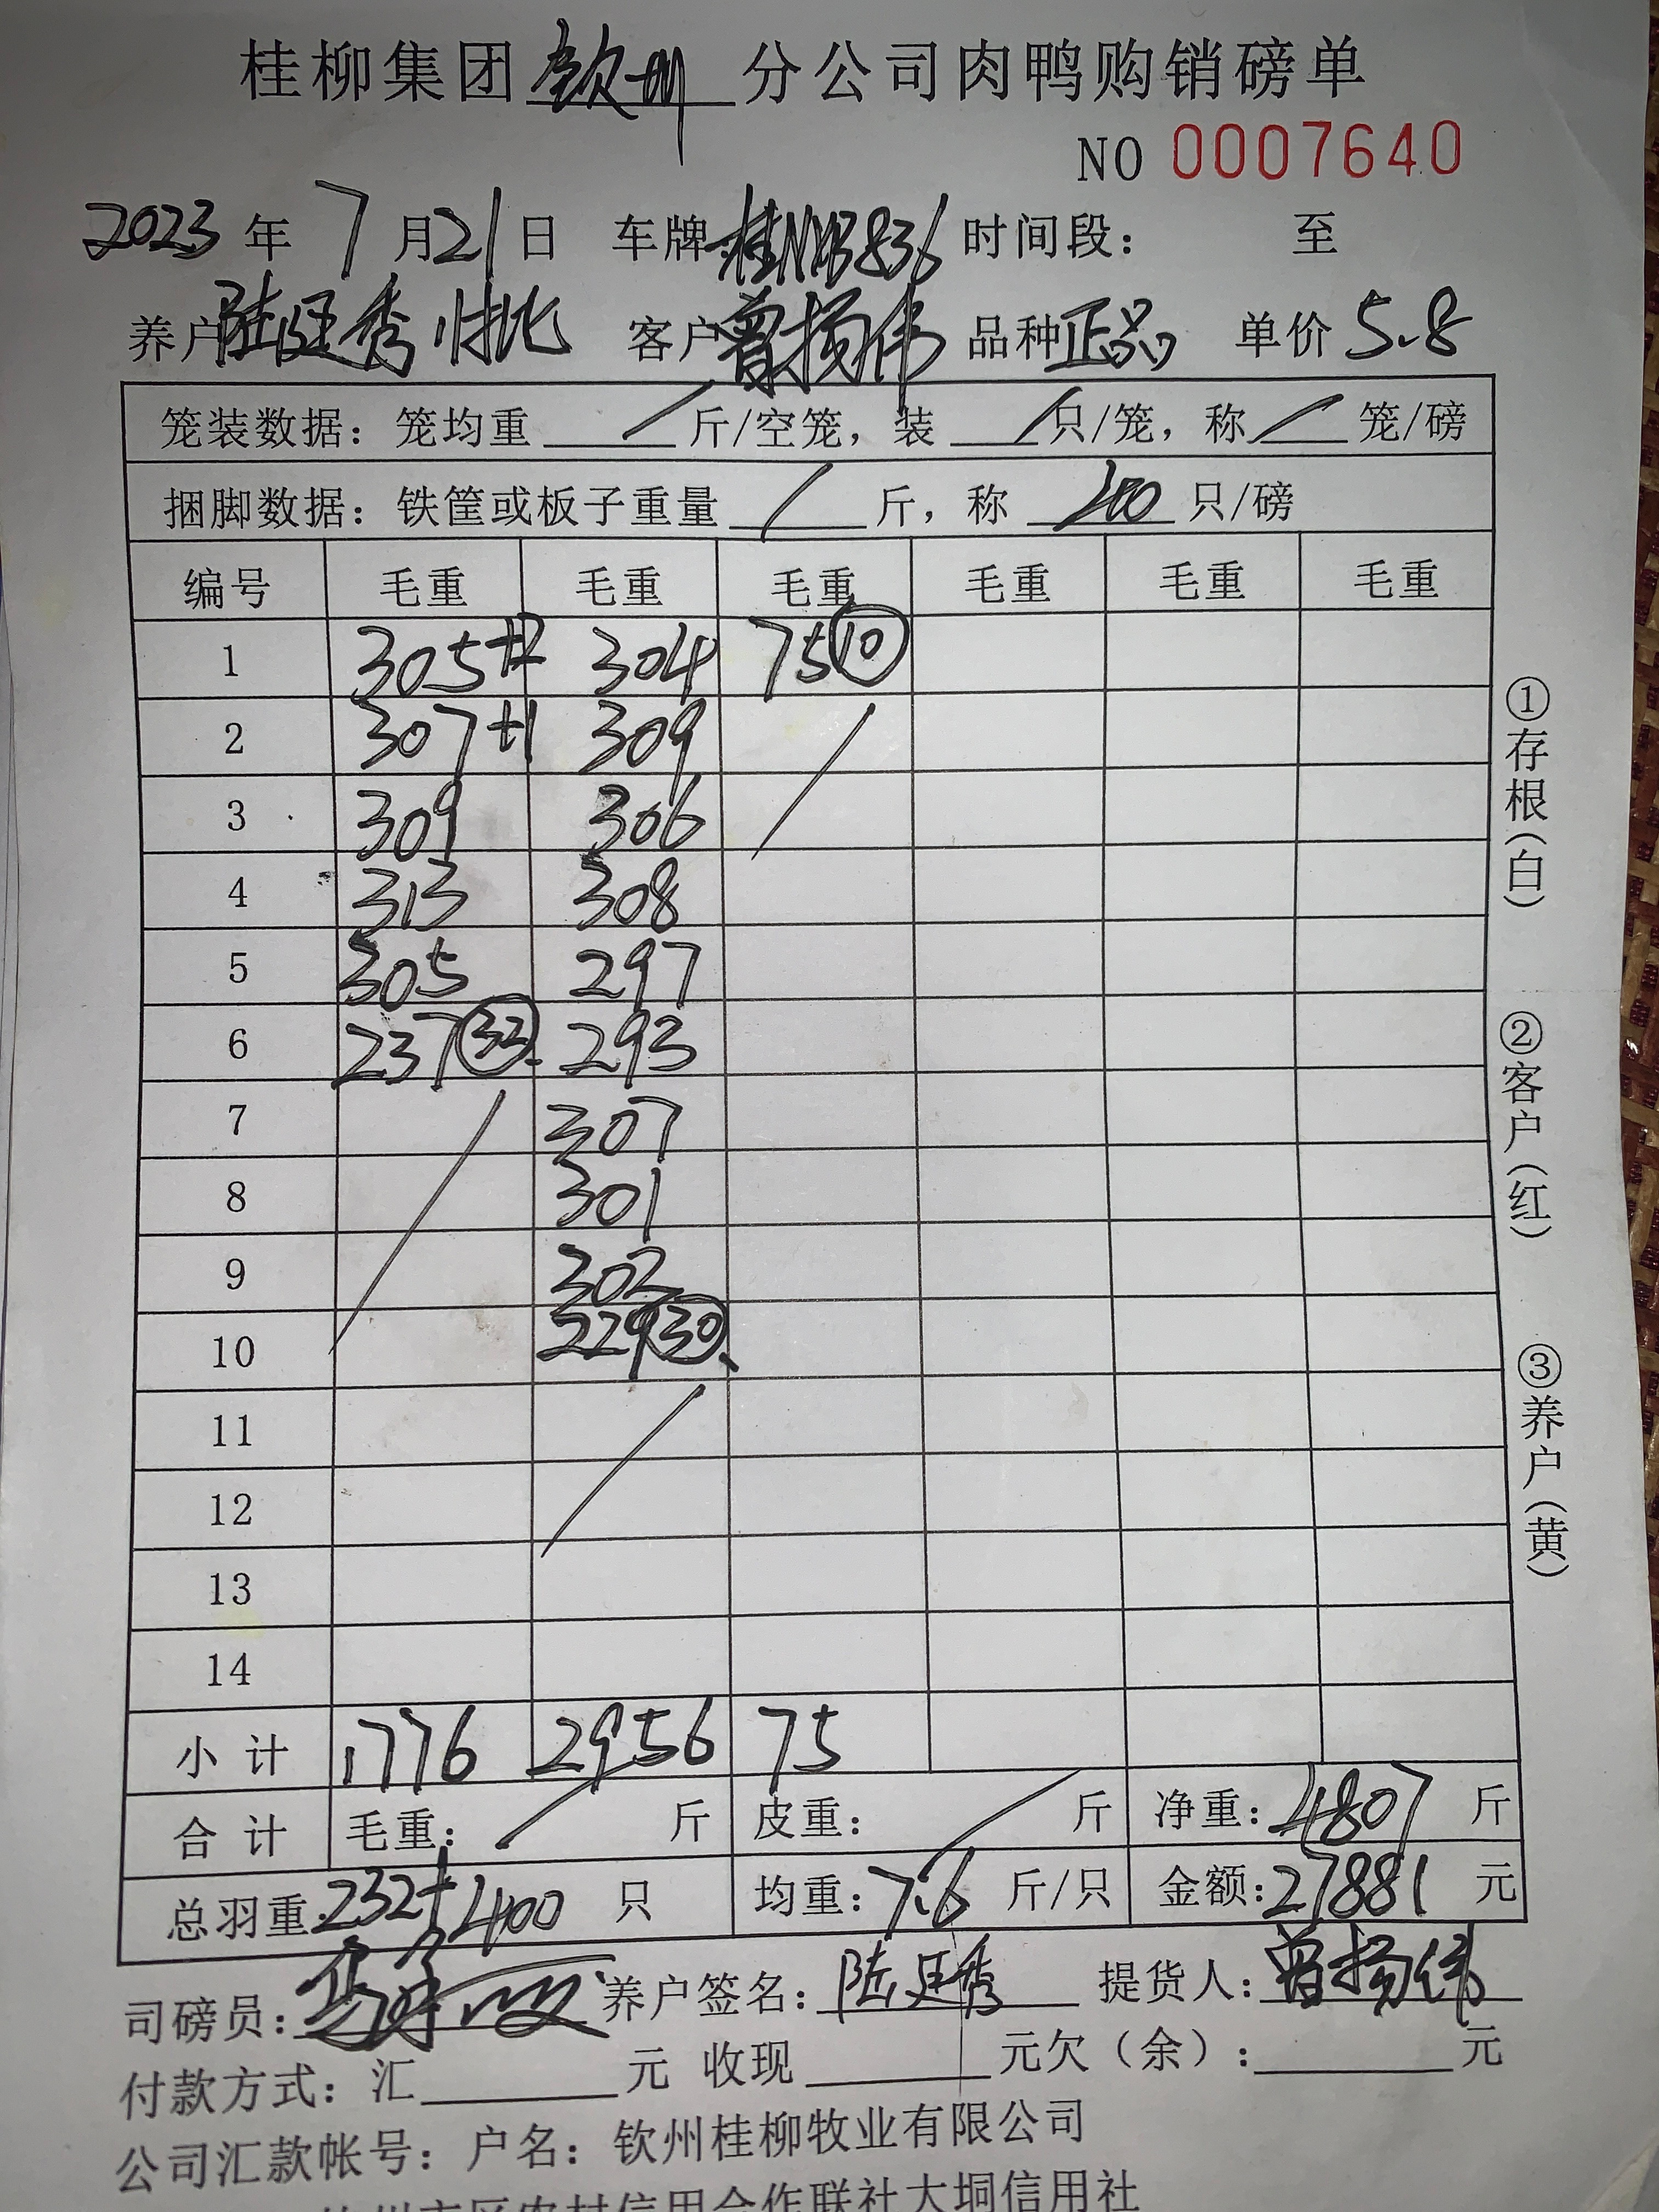 桂柳集团 钦州 分公司肉鸭购销磅单
NO 0007640
2023 年 7 月 21 日 车牌 桂N 836 时间段： 至
养户 陆廷秀 客户 曾扬伟 品种 正品 单价 5.8
笼装数据：笼均重 / 斤/空笼，装 / 只/笼，称 / 笼/磅
捆脚数据：铁筐或板子重量 / 斤，称 只/磅
编号 毛重 毛重 毛重 毛重 毛重 毛重
1 305+2 304 75 ⑩
2 307+1 309
3 309 306
4 313 308
5 305 297
6 237 ㉜ 293
7 307
8 301
9 302
10 229 ㉚
11
12
13
14
小计 1776 2956 75
合计 毛重： / 斤 皮重： / 斤 净重：4807 斤
总羽重：232+400 只 均重：7.6 斤/只 金额：27881 元
司磅员： 养户签名：陆廷秀 提货人：曾扬伟
付款方式：汇 元 收现 元欠（余）： 元
公司汇款帐号：户名：钦州桂柳牧业有限公司
钦州市区农村信用合作联社大垌信用社
①存根（白）
②客户（红）
③养户（黄）